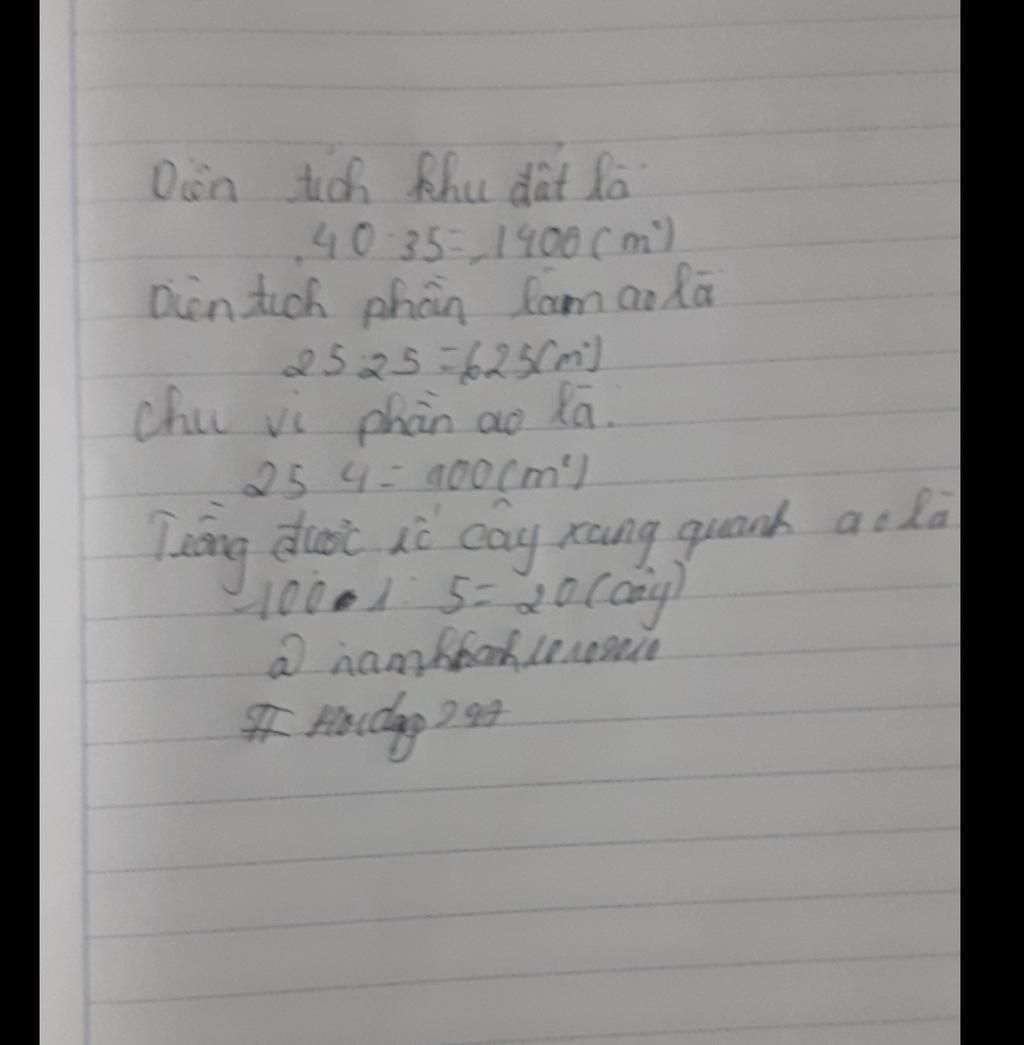 Diện tích khu đất là
40.35=1400(m²)
Diện tích phần làm ao là
25.25=625(m²)
Chu vi phần ao là.
25.4=100(m²)
Trồng được số cây xung quanh ao là
100: 5=20(cây)
# Hoidap247